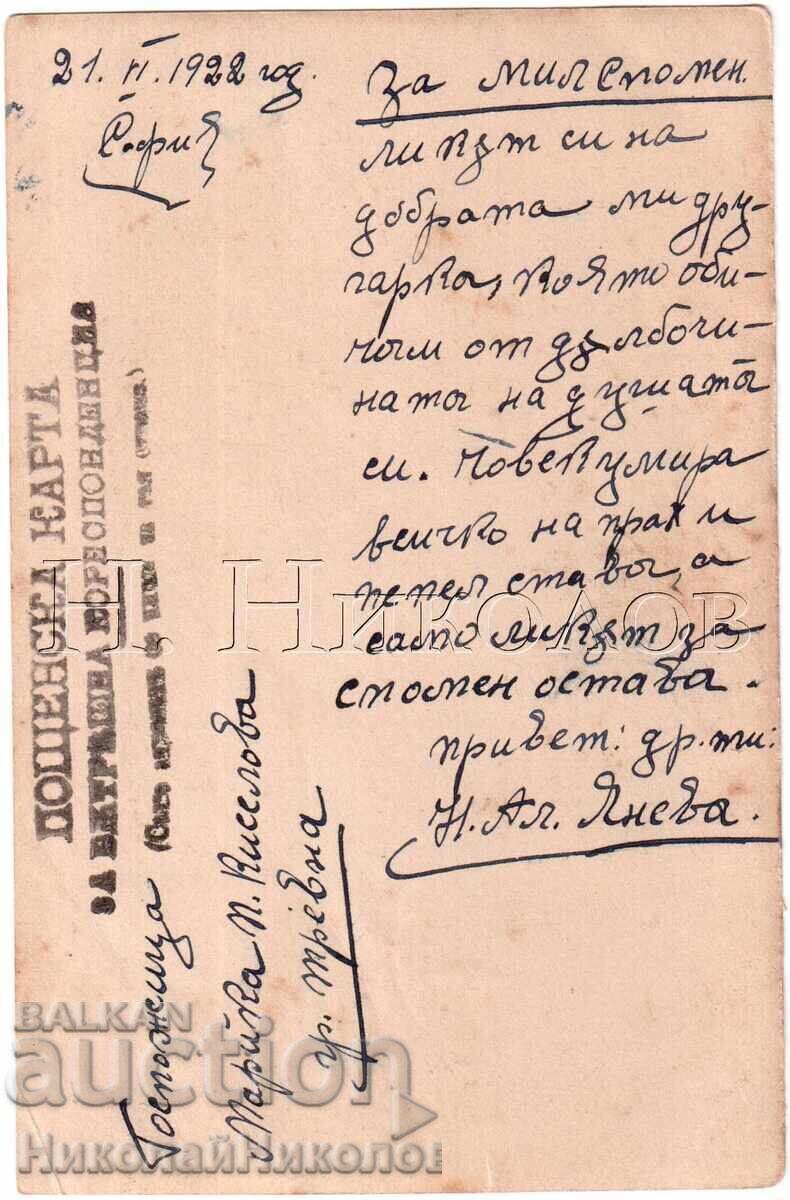 21. VI. 1922 год.
София
За мил спомен.
ликът си на
добрата ми дру-
гарка, която оби-
чам от дълбочи-
ната на душата
си. Човек умира
всичко на прах и
пепел става, а
само ликът за
спомен остава.
привет: др. ти:
Н. Ал. Янева.
ПОЩЕНСКА КАРТА
ЗА ВЪТРЕШНА КОРЕСПОНДЕНЦИЯ
Госпожица
Марийка П. Киселова
гр. Трѣвна
Н. НИКОЛОВ
BALKAN
auction
НиколайНиколов